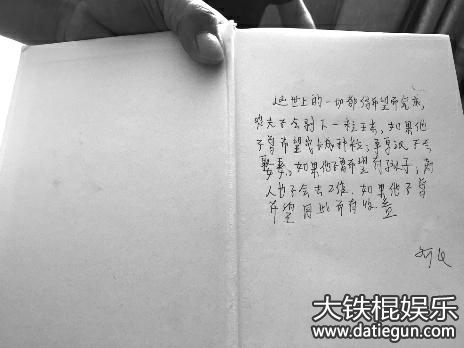 这世上的一切都借希望而完成,
农夫不会剥下一粒玉米,如果他
不曾希望它长成种粒;单身汉不会
娶妻,如果他不曾希望有孩子;商
人也不会去工作,如果他不曾
希望因此而有收益
大铁棍娱乐
www.datiegun.com